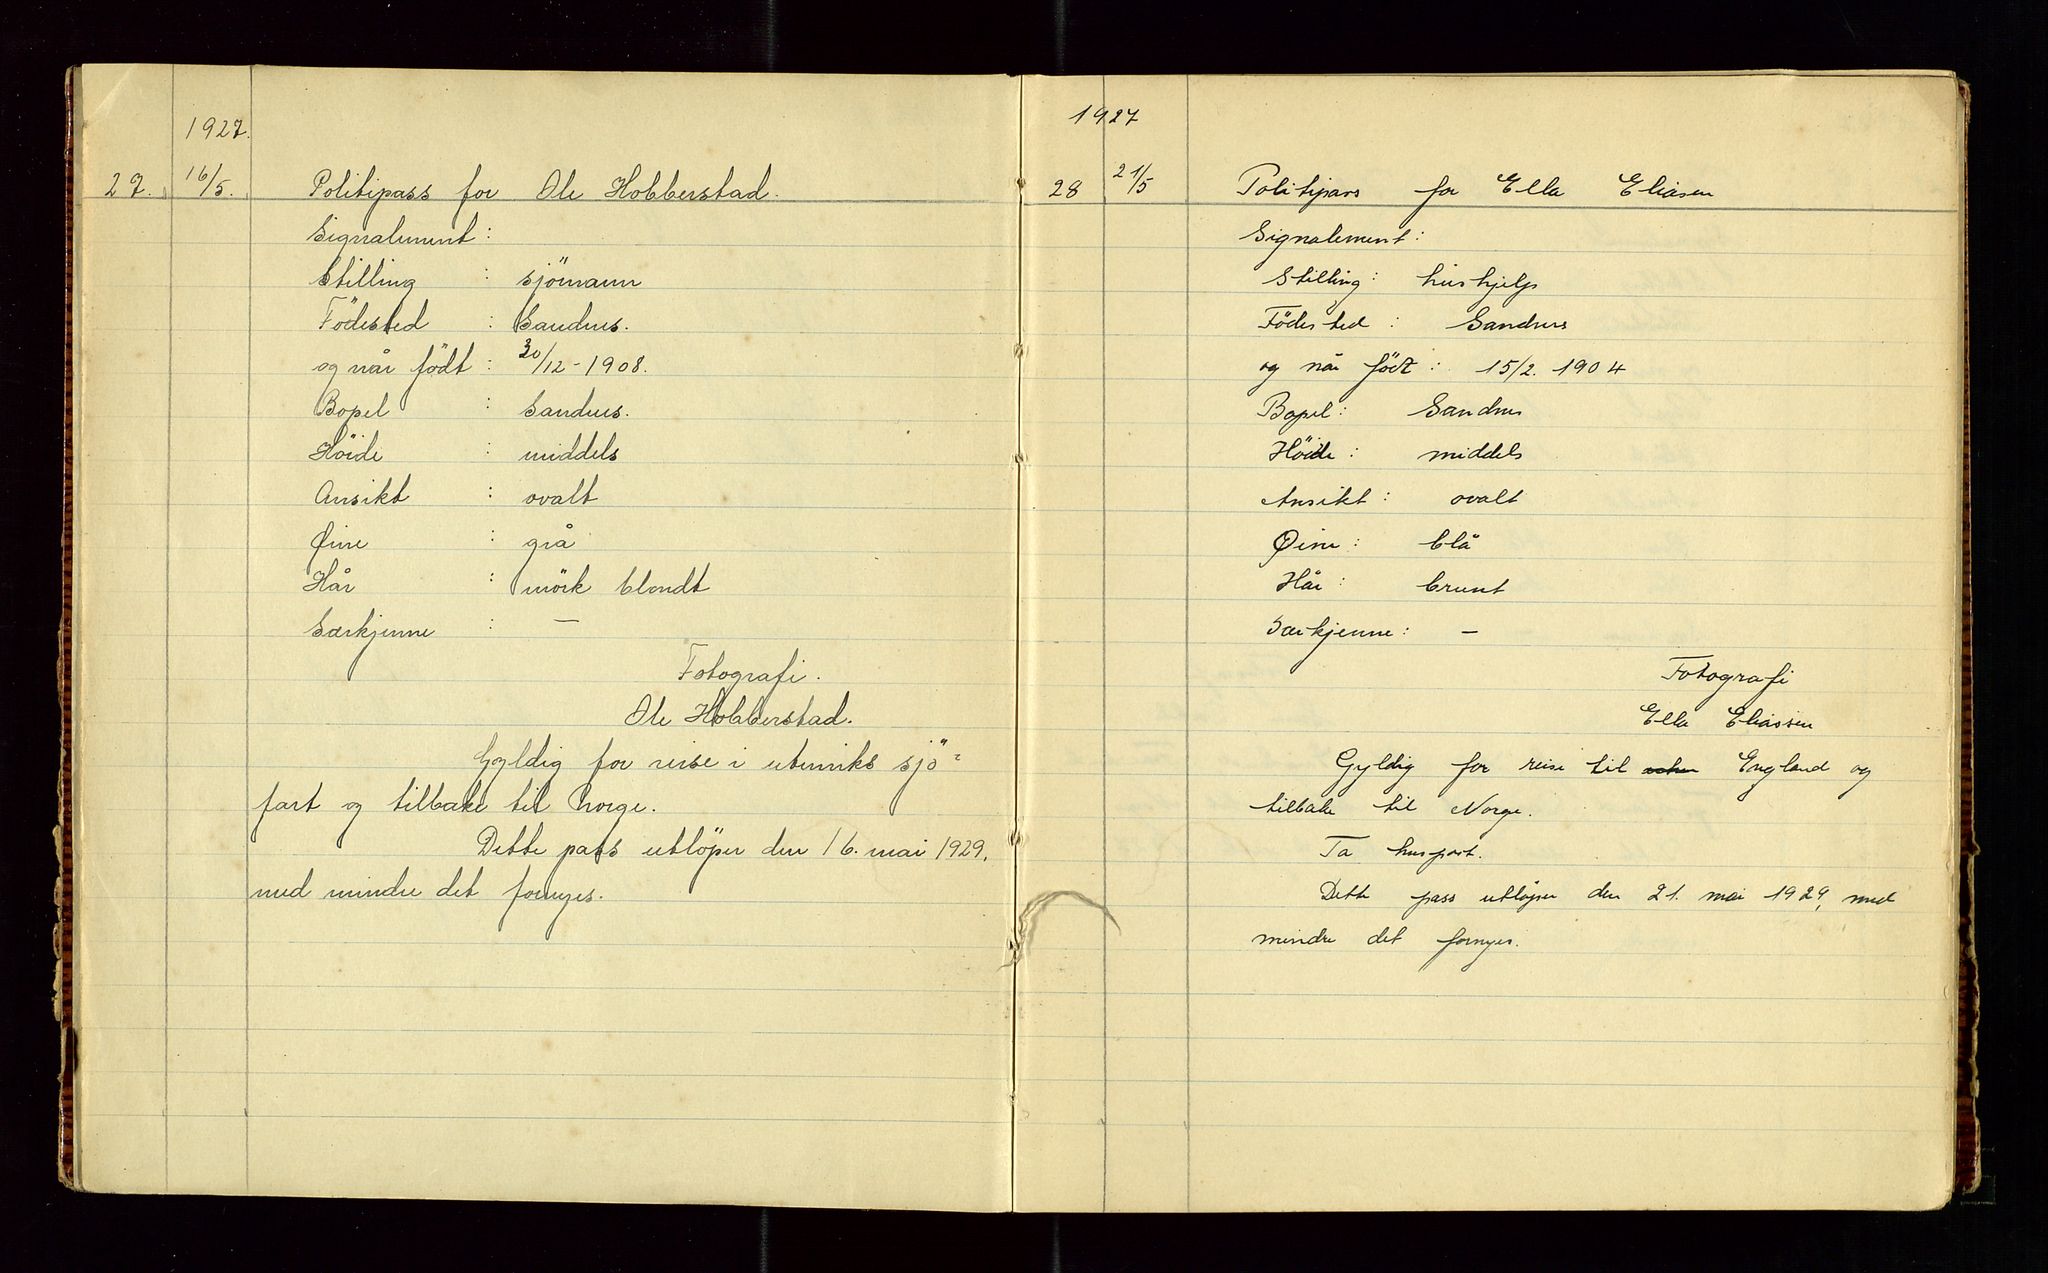 1927.
27. 16/5. Politipass for Ole Hobberstad.
Signalement:
Stilling : sjömann
Födested : Sandnes.
og når födt : 30/12-1908.
Bopel : Sandnes.
Höide : middels
Ansikt : ovalt
Øine : grå
Hår : mörk blondt
Særkjenne : —
Fotografi.
Ole Hobberstad.
Gyldig for reise i utenriks sjö=
fart og tilbake til Norge.
Dette pass utlöper den 16. mai 1929,
med mindre det fornyes.
1927
28 21/5 Politipass for Ella Eliasen
Signalement:
Stilling: hushjelp
Födested : Sandnes
og når födt : 15/2. 1904
Bopel: Sandnes
Höide : middels
Ansikt : ovalt
Øine : blå
Hår : brunt
Særkjenne: —
Fotografi
Ella Eliassen
Gyldig for reise til England og
tilbake til Norge.
Ta huspost.
Dette pass utlöper den 21. mai 1929, med
mindre det fornyes.